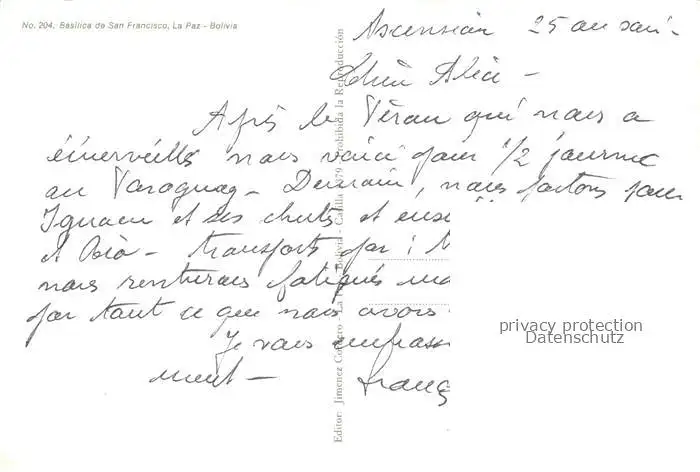 No. 204. Basílica de San Francisco, La Paz - Bolivia
Ascension 25 au soir-
Chère Alice -
Après le Pérou qui nous a
émerveillés nous voici pour 1/2 journée
au Paraguay - Demain, nous partons pour
Iguacu et ses chutes et ens
et - transports par
nous rentrerons fatigués ma
par tout ce que nous avons
Je vous embrass
ment - Franç
Editor: Jimenez - La - Bolivia - Prohibida la Reproducción
privacy protection
Datenschutz